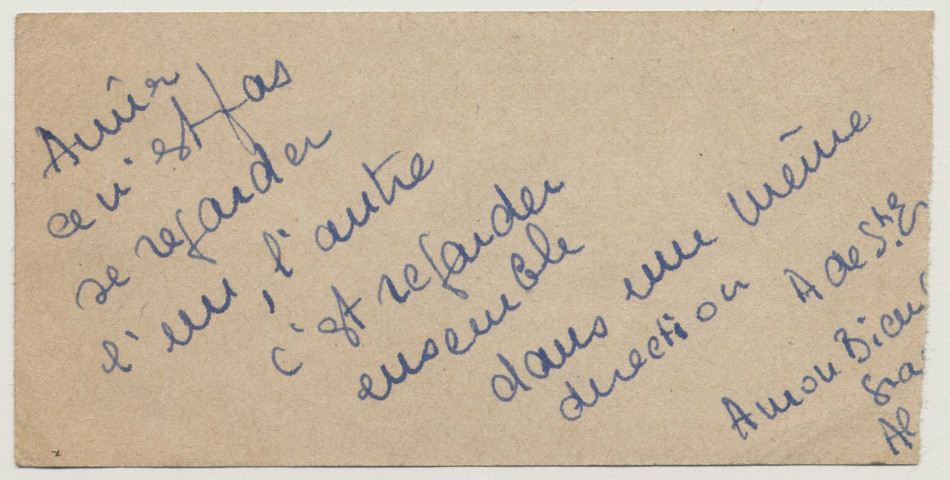 Aimer
ce n'est pas
se regarder
l'un, l'autre
c'est regarder
ensemble
dans une même
direction A de St. E
Amon Bien
Gra
Al